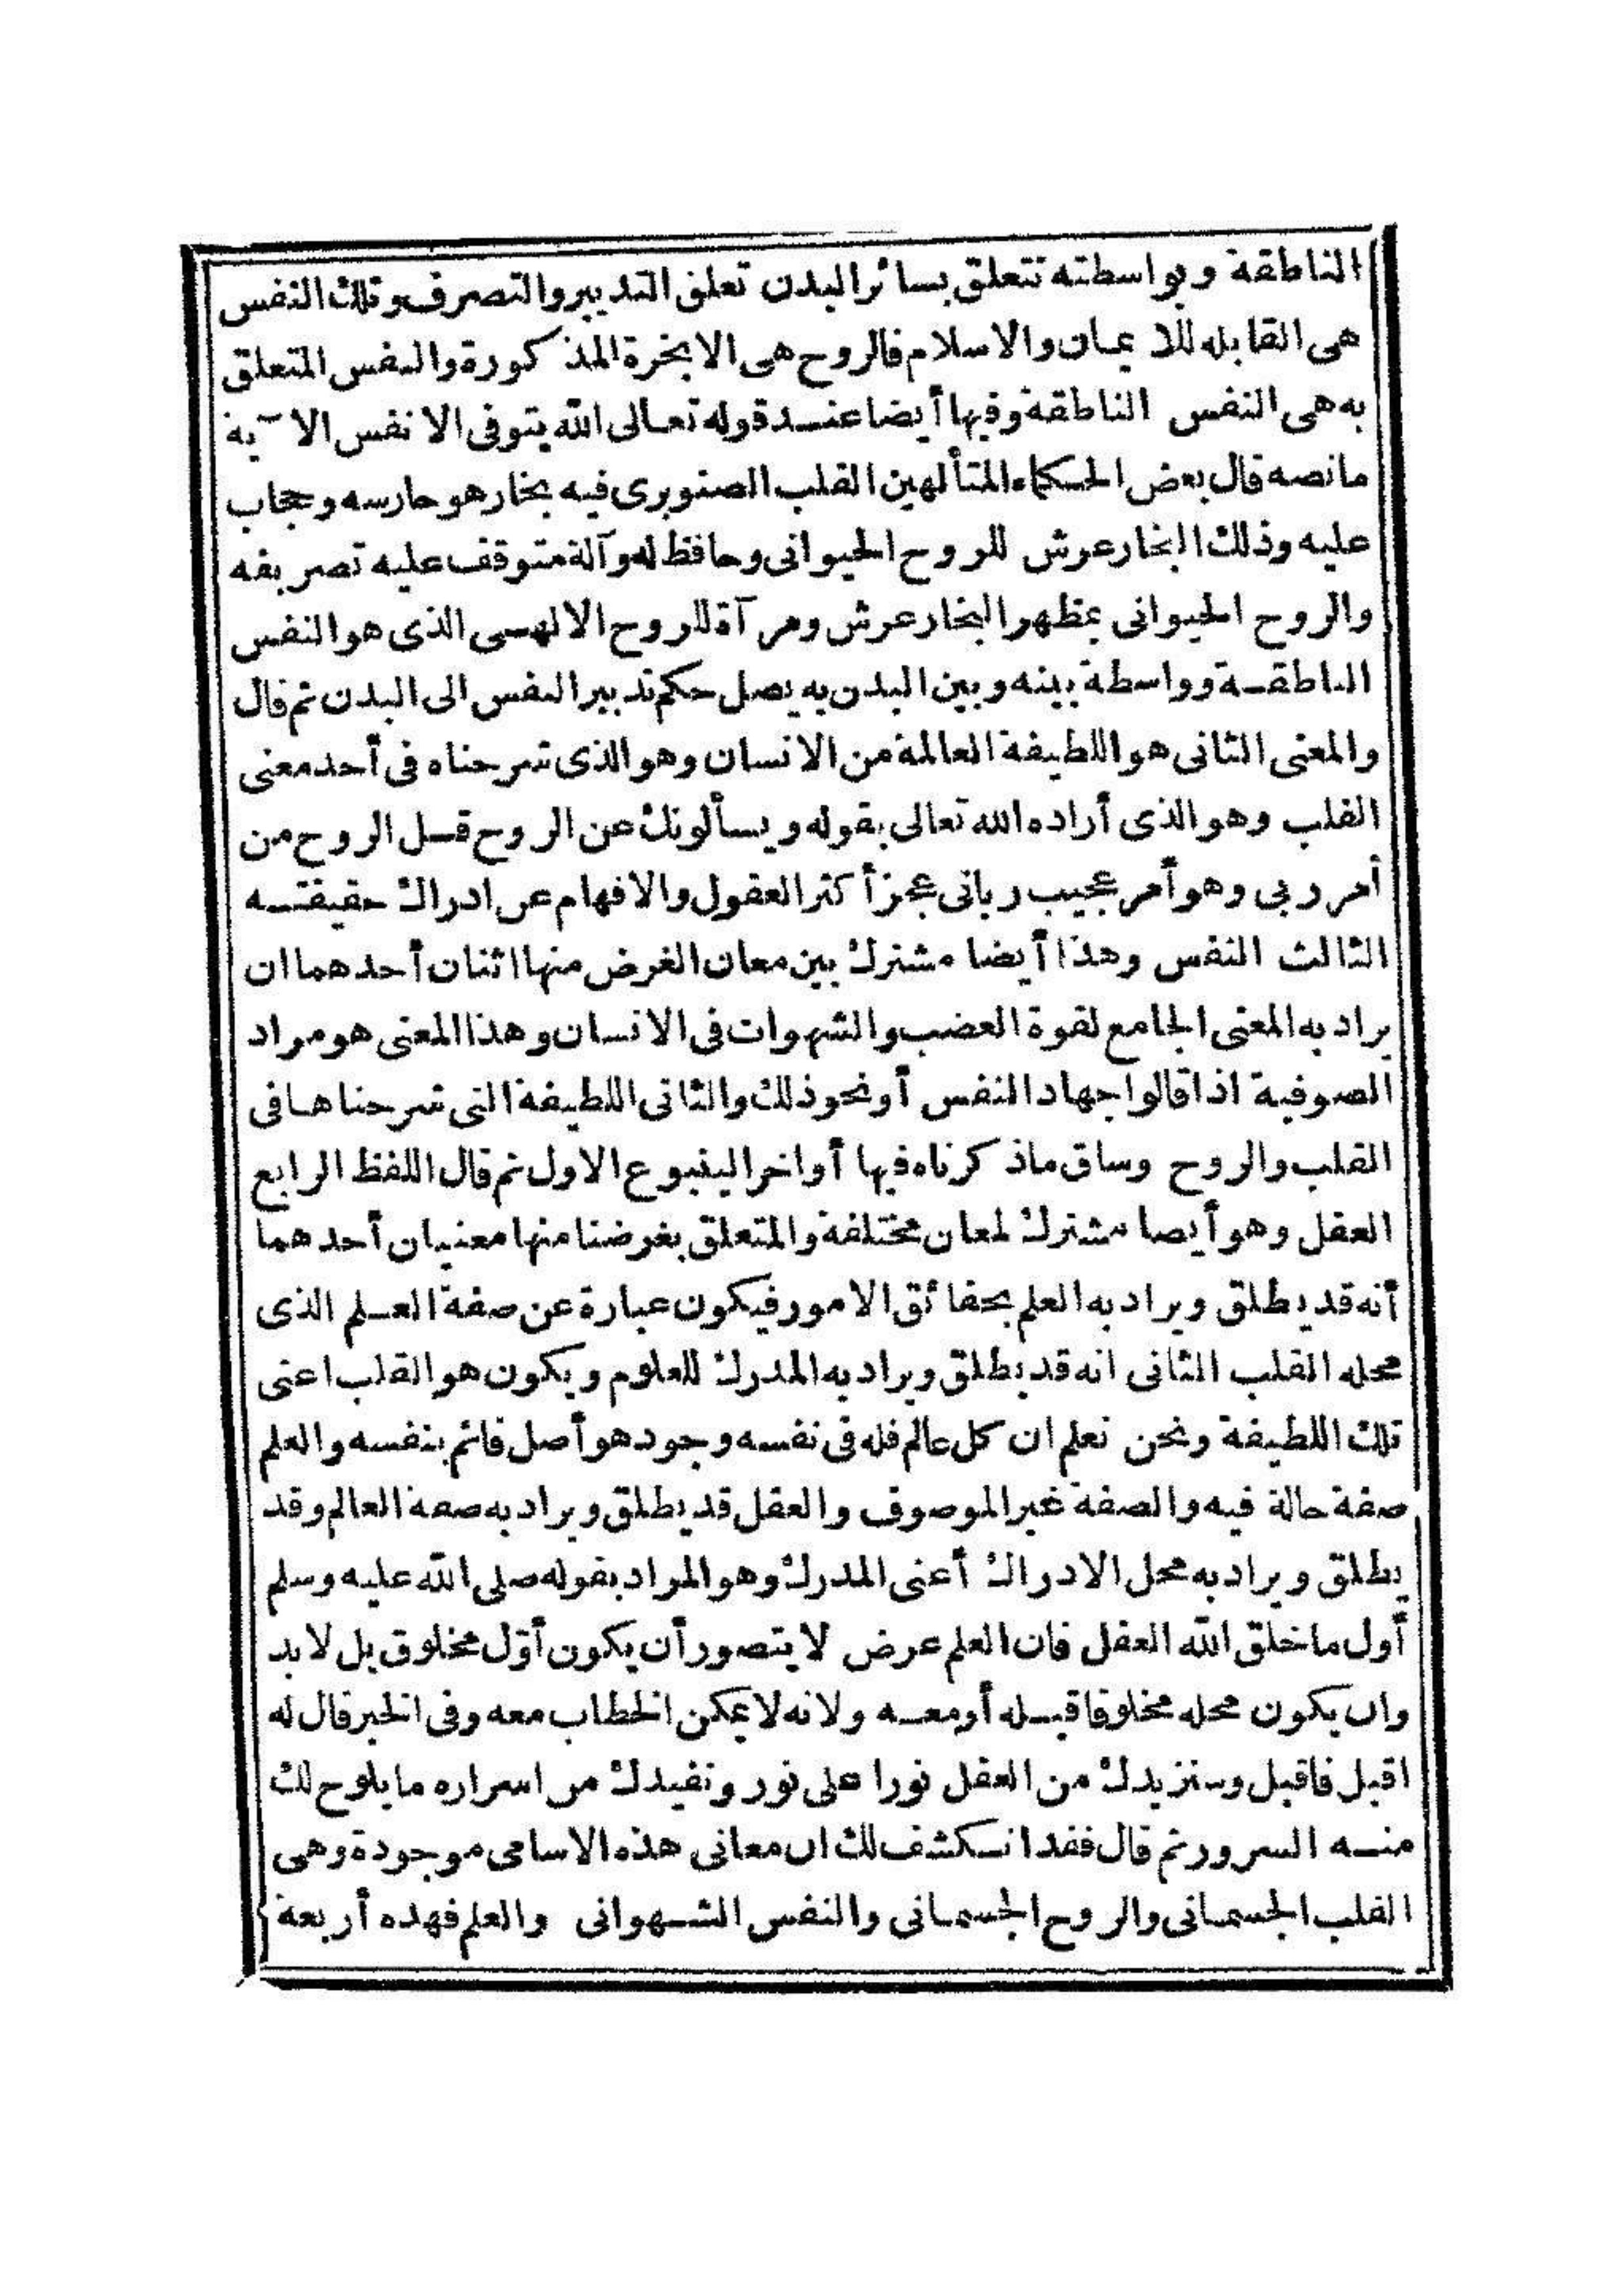 الناطقة وبواسطته تتعلق بسائر البدن تعلق التدبير والتصرف وتلك النفس
هى القابله للايمان والاسلام فالروح هى الابخرة المذكورة والنفس المتعلق
به هى النفس الناطقة وفيها أيضا عند قوله تعالى الله يتوفى الانفس الآية
مانصه قال بعض الحكماء المتألهين القلب الصنوبرى فيه بخار هو حارسه وحجاب
عليه وذلك البخار عرش للروح الحيوانى وحافظ له وآلة متوقف عليه تصريفه
والروح الحيوانى بمظهر البخار عرش ومرآة للروح الالهى الذى هو النفس
الناطقة وواسطة بينه وبين البدن به يصل حكم تدبير النفس الى البدن ثم قال
والمعنى الثانى هو اللطيفة العالمة من الانسان وهو الذى شرحناه فى أحد معنى
القلب وهو الذى أراده الله تعالى بقوله ويسألونك عن الروح قل الروح من
أمر ربى وهو أمر عجيب ربانى عجز أكثر العقول والافهام عن ادراك حقيقته
الثالث النفس وهذا أيضا مشترك بين معان الغرض منها اثنان أحدهما ان
يراد به المعنى الجامع لقوة الغضب والشهوات فى الانسان وهذا المعنى هو مراد
الصوفية اذا قالوا جهاد النفس أونحو ذلك والثانى اللطيفة التى شرحناها فى
القلب والروح وساق ماذكرناه فيها أواخر الينبوع الاول ثم قال اللفظ الرابع
العقل وهو أيضا مشترك لمعان مختلفة والمتعلق بغرضنا منها معنيان أحدهما
أنه قد يطلق ويراد به العلم بحقائق الامور فيكون عبارة عن صفة العلم الذى
محله القلب الثانى انه قد يطلق ويراد به المدرك للعلوم ويكون هو القلب اعنى
تلك اللطيفة ونحن نعلم ان كل عالم فله فى نفسه وجود هو أصل قائم بنفسه والعلم
صفة حالة فيه والصفة غير الموصوف والعقل قد يطلق ويراد به صفة العالم وقد
يطلق ويراد به محل الادراك أعنى المدرك وهو المراد بقوله صلى الله عليه وسلم
أول ما خلق الله العقل فان العلم عرض لايتصور أن يكون أوّل مخلوق بل لابد
وان يكون محله مخلوقا قبله أومعه ولانه لايمكن الخطاب معه وفى الخبر قال له
اقبل فاقبل وسنزيدك من العقل نورا على نور ونفيدك من اسراره ما يلوح لك
منه السرور ثم قال فقد انكشف لك ان معانى هذه الاسامى موجودة وهى
القلب الجسمانى والروح الجسمانى والنفس الشهوانى والعلم فهذه أربعة